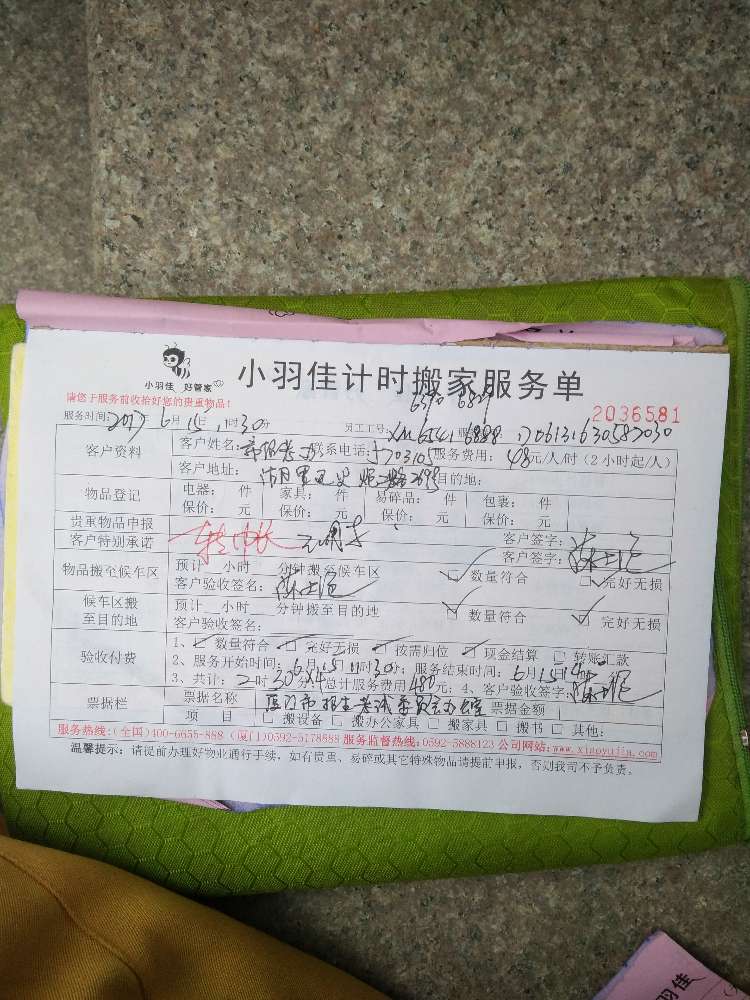 小羽佳 好管家
小羽佳计时搬家服务单
请您于服务前收拾好您的贵重物品!
6390 6829
2036581
服务时间:2017年6月15日11时30分 员工工号: XM6541 6888
客户资料 客户姓名: 联系电话:5703105 服务费用:48元/人/时(2小时起/人)
客户地址: 目的地:
物品登记 电器: 件 家具: 件 易碎品: 件 包裹: 件
保价: 元 保价: 元 保价: 元 保价: 元
贵重物品申报 客户签字:
客户特别承诺 客户签字:
物品搬至候车区 预计 小时 分钟搬至候车区 数量符合 完好无损
客户验收签名:
候车区搬至目的地 预计 小时 分钟搬至目的地 数量符合 完好无损
客户验收签名:
验收付费 1、数量符合 完好无损 按需归位 现金结算 转账汇款
2、服务开始时间:6月15日11时30分;服务结束时间:6月15日14时
3、共计:2时30分×4 总计服务费用480元;4、客户验收签字:
票据栏 票据名称 厦门市招生考试委员会办公室 票据金额
项目 搬设备 搬办公家具 搬家具 搬书 其他:
服务热线:(全国)400-6655-888 (厦门)0592-5178888 服务监督热线:0592-5888123 公司网站:www.xiaoyujia.com
温馨提示:请提前办理好物业通行手续,如有贵重、易碎或其它特殊物品请提前申报,否则我司不予负责。
小羽佳